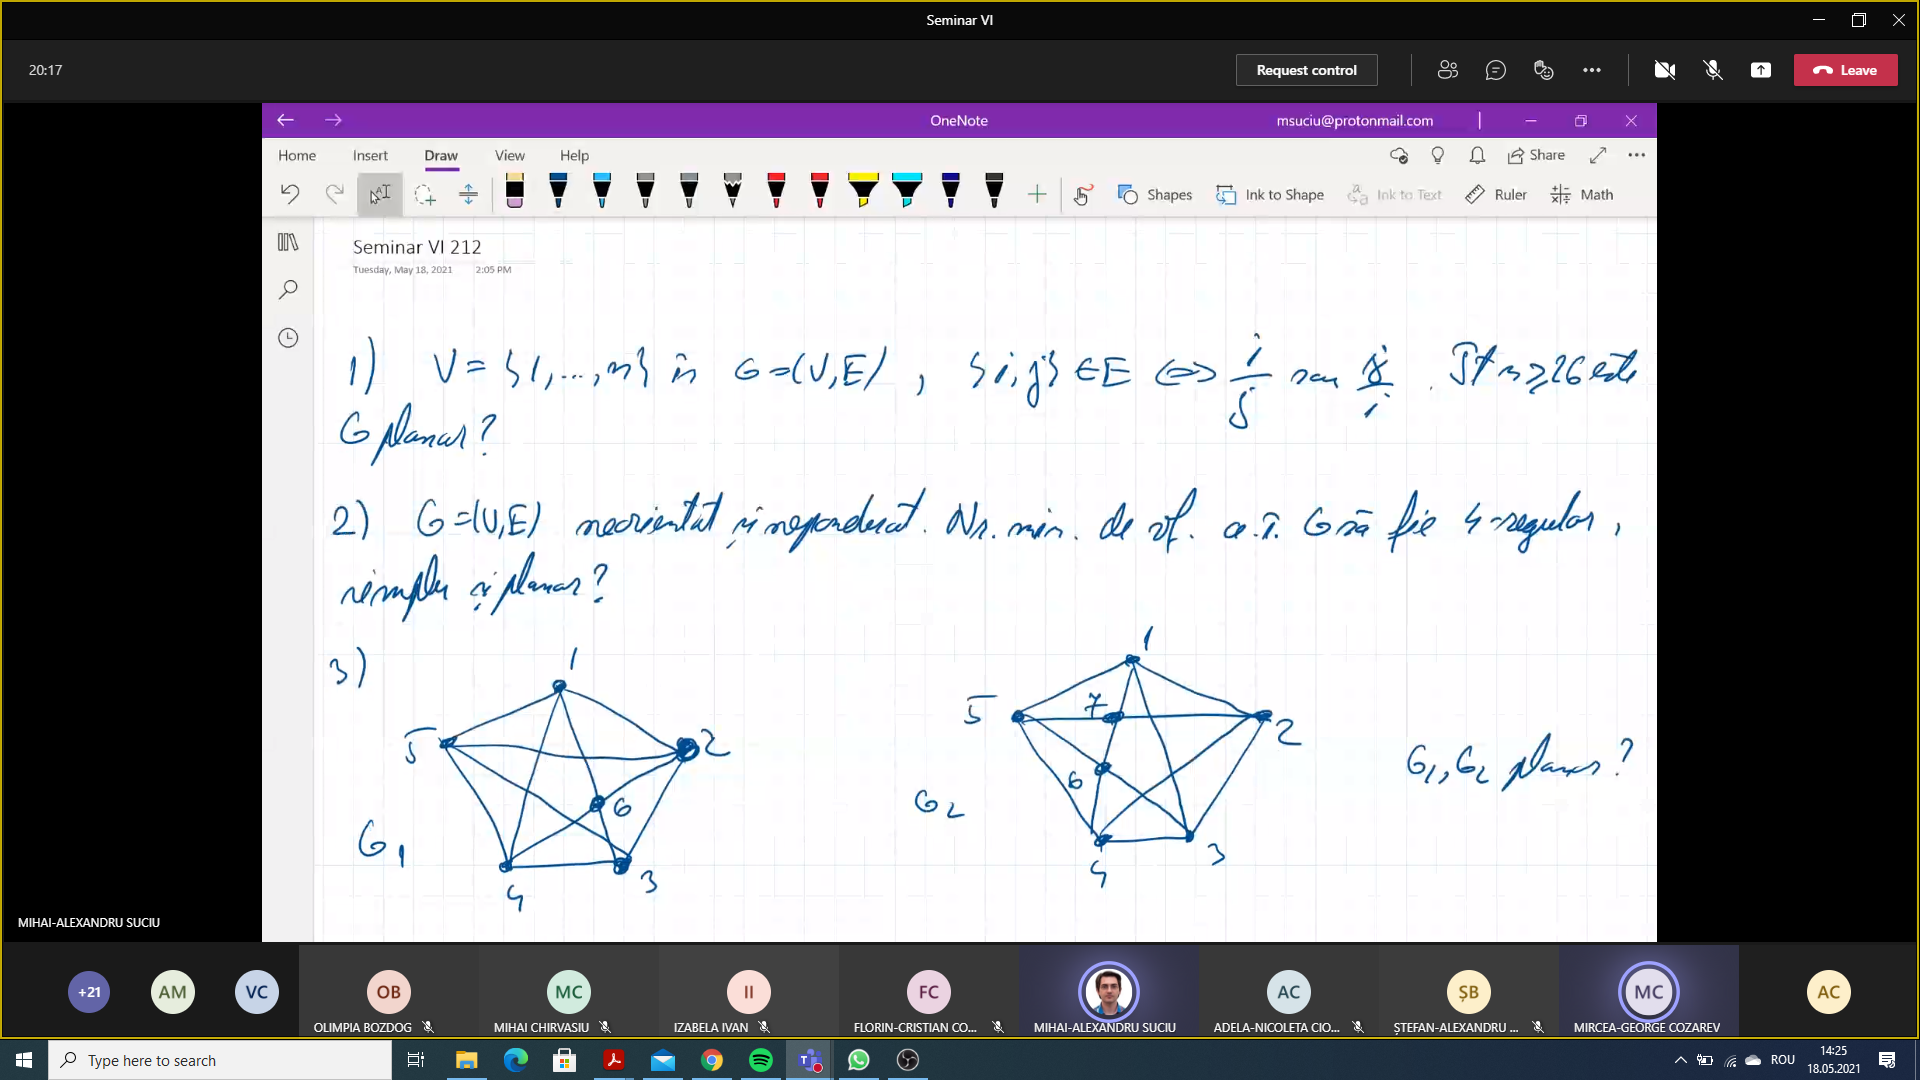 Seminar VI
20:17
Request control
Leave
OneNote
msuciu@protonmail.com
Home Insert Draw View Help
Share
Shapes
Ink to Shape
Ink to Text
Ruler
Math
Seminar VI 212
Tuesday, May 18, 2021 2:05 PM
1) V = {1,...,n} în G=(V,E), {i,j} ∈ E ⇔ i/j sau j/i. Pt n ≥ 26 este
G planar?
2) G=(V,E) neorientat și neponderat. Nr. min. de vf. a.î. G să fie 4-regular,
simplu și planar?
3)
1
5
2
6
G1
4
3
1
5
7
2
6
G2
4
3
G1, G2 planar?
MIHAI-ALEXANDRU SUCIU
+21
AM
VC
OB
MC
II
FC
AC
ȘB
MC
AC
OLIMPIA BOZDOG
MIHAI CHIRVASIU
IZABELA IVAN
FLORIN-CRISTIAN CO...
MIHAI-ALEXANDRU SUCIU
ADELA-NICOLETA CIO...
ȘTEFAN-ALEXANDRU ...
MIRCEA-GEORGE COZAREV
Type here to search
ROU
14:25
18.05.2021